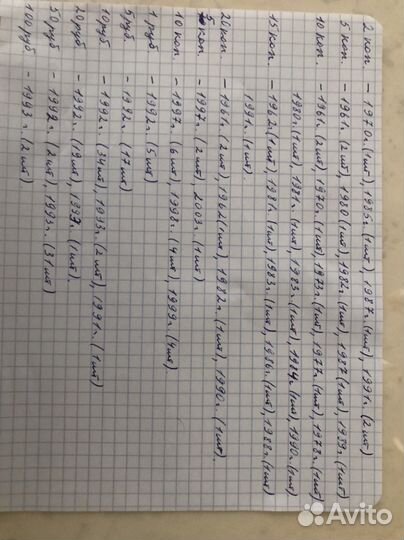 2 коп. - 1970г. (1шт), 1985г. (1шт), 1987г. (1шт), 1991г. (2шт)
5 коп. - 1961г. (2шт), 1990 (1шт), 1982г. (1шт), 1987 (1шт), 1989г. (1шт)
10 коп. - 1961г. (2шт), 1970г. (1шт), 1973г. (1шт), 1977г. (1шт), 1978г. (1шт)
1980г. (1шт), 1981г. (1шт), 1983г. (1шт), 1984г. (1шт), 1990г. (1шт)
15 коп. - 1962г. (1шт), 1981г. (1шт), 1983г. (1шт), 1986г. (1шт), 1988г. (1шт)
1991г. (1шт).
20 коп. - 1961г. (2шт), 1962 (1шт), 1982г. (1шт), 1990г. (1шт).
5 коп. - 1997г. (2шт), 2003г. (1шт)
10 коп. - 1997г. (6шт), 1998г. (4шт), 1999г. (4шт)
1 руб - 1992г. (5шт)
5 руб - 1992г. (17шт)
10 руб - 1992г. (34шт), 1993г. (2шт), 1991г. (1шт)
20 руб - 1992г. (19шт), 1993г. (1шт).
50 руб - 1992г. (2шт), 1993г. (31шт)
100 руб - 1993г. (2шт)
Avito